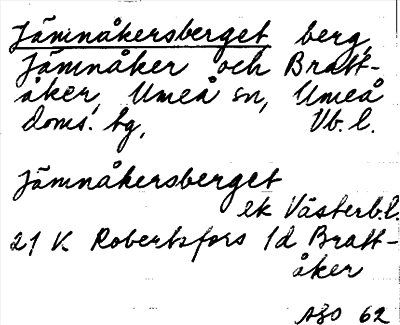 Jämnåkersberget berg,
Jämnåker och Bratt-
åker, Umeå sn, Umeå
doms. hg, Vb. l.
Jämnåkersberget
ek Västerb.l.
21 V. Robertsfors 1d Bratt-
åker
ASO 62